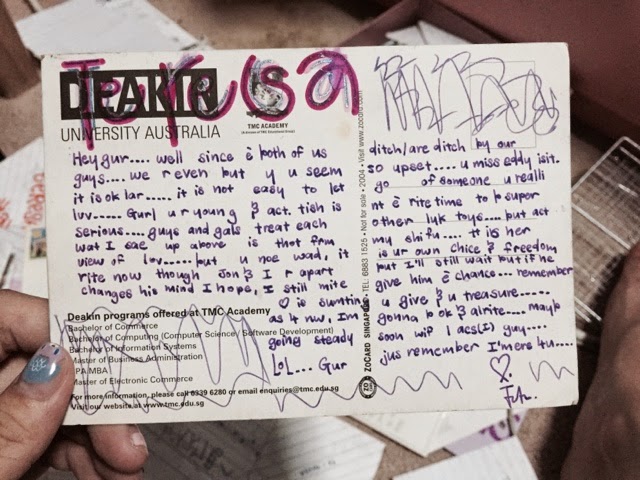 Teresa
DEAKIN
UNIVERSITY AUSTRALIA
TMC ACADEMY
Hey gur.... well since è both of us
guys.... we r even but y u seem
it is ok lar..... it is not easy to let
luv..... Gurl u r young & act. tish is
serious.... guys and gals treat each
wat I sae up above is thot frm
view of lov..... but u noe wad, it
rite now though Jon & I r apart
changes his mind I hope, I still mite
♡ is sumting
as 4 nw, I'm
going steady
LOL... Gur
Deakin programs offered at TMC Academy
Bachelor of Commerce
Bachelor of Computing (Computer Science / Software Development)
Bachelor of Information Systems
Master of Business Administration
MBA
Master of Electronic Commerce
For more information, please call 6339 6280 or email enquiries@tmc.edu.sg
Visit our website at www.tmc.edu.sg
ZOCARD SINGAPORE • TEL: 6883 1525 • Not for sale • 2004 • Visit www.zocard.com
ditch/are ditch by our
so upset.... u miss eddy isit.
go of someone u realli
nt è rite time to b supor
other luk toys.... but act
my shifu.... tt is her
is ur own chice & freedom
but I'll still wait but if he
give him è chance... remember
u give & u treasure.....
gonna b ok & alrite.... mayb
soon wif 1 acs(I) guy....
jus remember I'm ere 4 u....
♡.